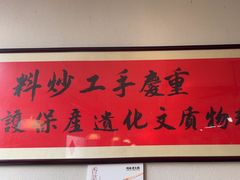 重慶手工炒料
物質文化遺產保護